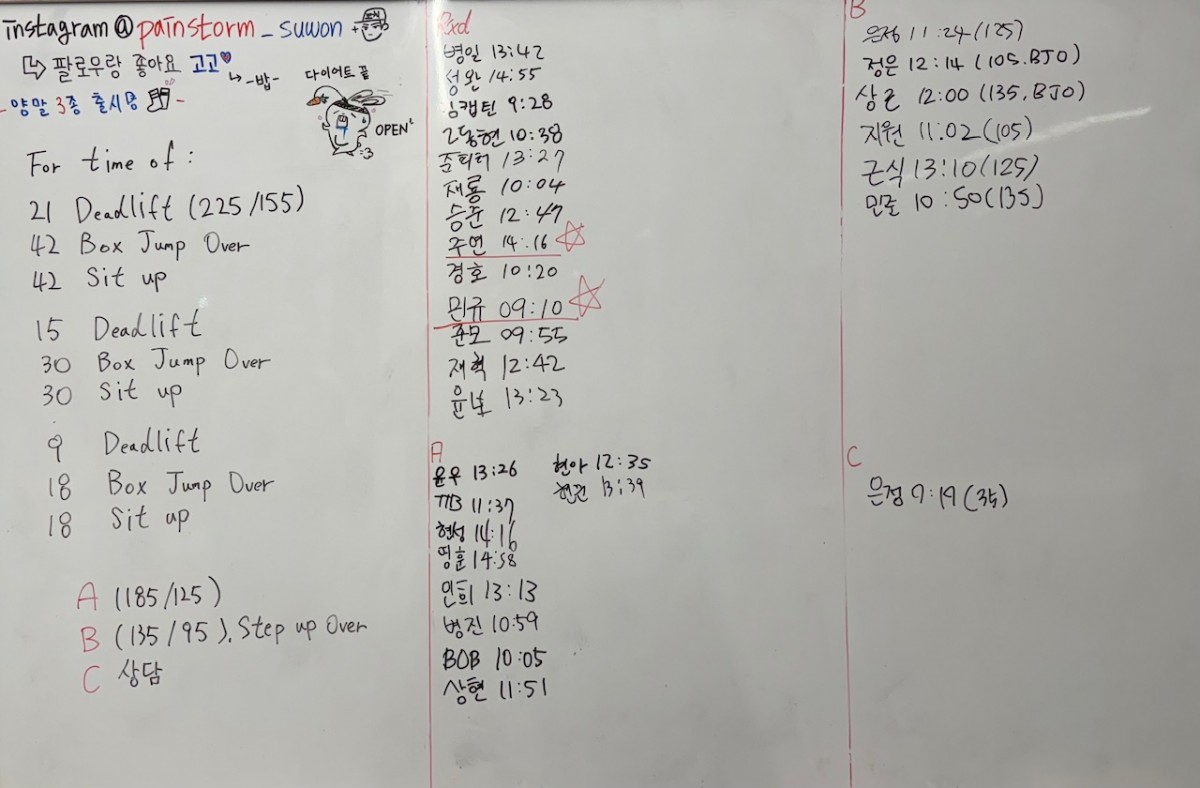 instagram @painstorm_suwon
팔로우랑 좋아요 고고
-밥-
다이어트 끝
- 양말 3종 출시중 -
OPEN
For time of :
21 Deadlift (225/155)
42 Box Jump Over
42 Sit up
15 Deadlift
30 Box Jump Over
30 Sit up
9 Deadlift
18 Box Jump Over
18 Sit up
A (185/125)
B (135/95), Step up Over
C 상담
Rxd
병일 13:42
성완 14:55
캡틴 9:28
10:38
준피터 13:27
재룡 10:04
승준 12:47
주연 14:16
경호 10:20
민규 09:10
준모 09:55
재혁 12:42
13:23
A
윤우 13:26
11:37
현성 14:16
영훈 14:58
인희 13:13
병진 10:59
BOB 10:05
상현 11:51
현아 12:35
13:39
B
은정 11:24 (125)
정은 12:14 (105.BJO)
상근 12:00 (135, BJO)
지원 11:02 (105)
근식 13:10 (125)
10:50 (135)
C
은정 9:19 (35)